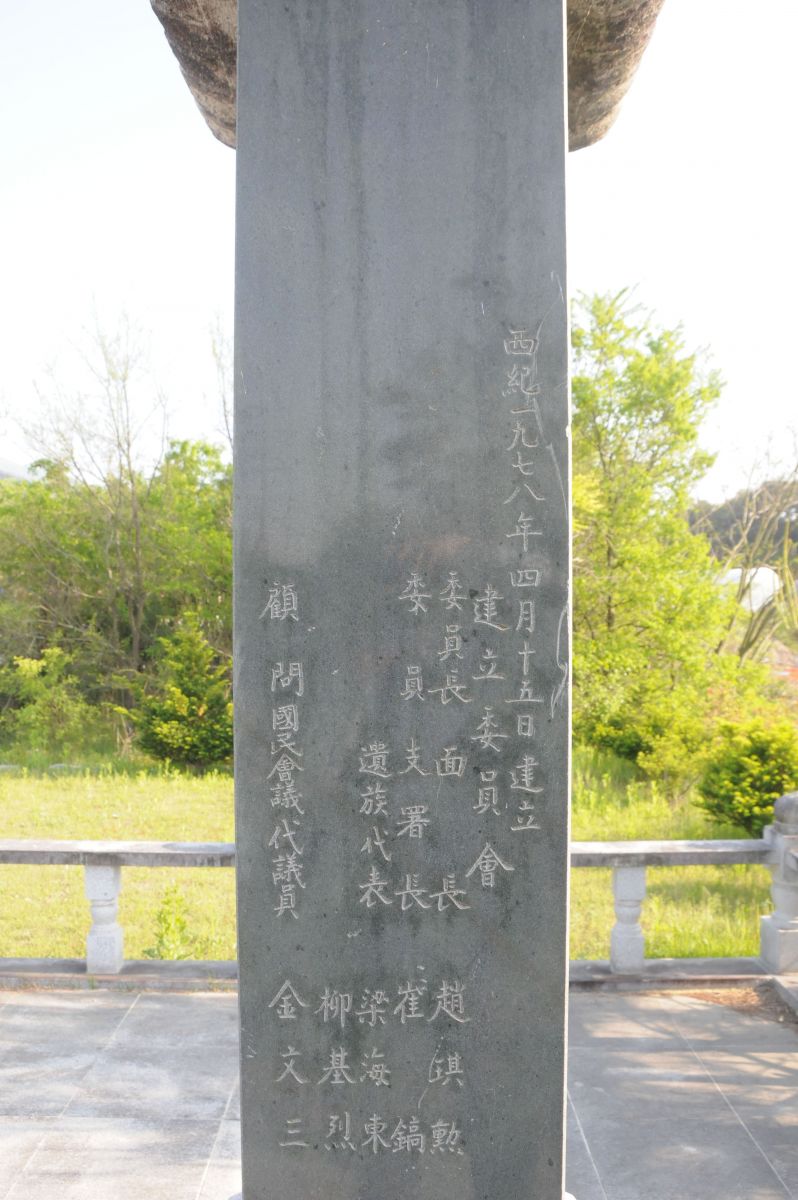 西紀一九七八年四月十五日建立
建立委員會
委員長 面長 趙鎮勲
委員 支署長 崔鎬
遺族代表 梁海東
柳基烈
顧問 國民會議代議員 金文三